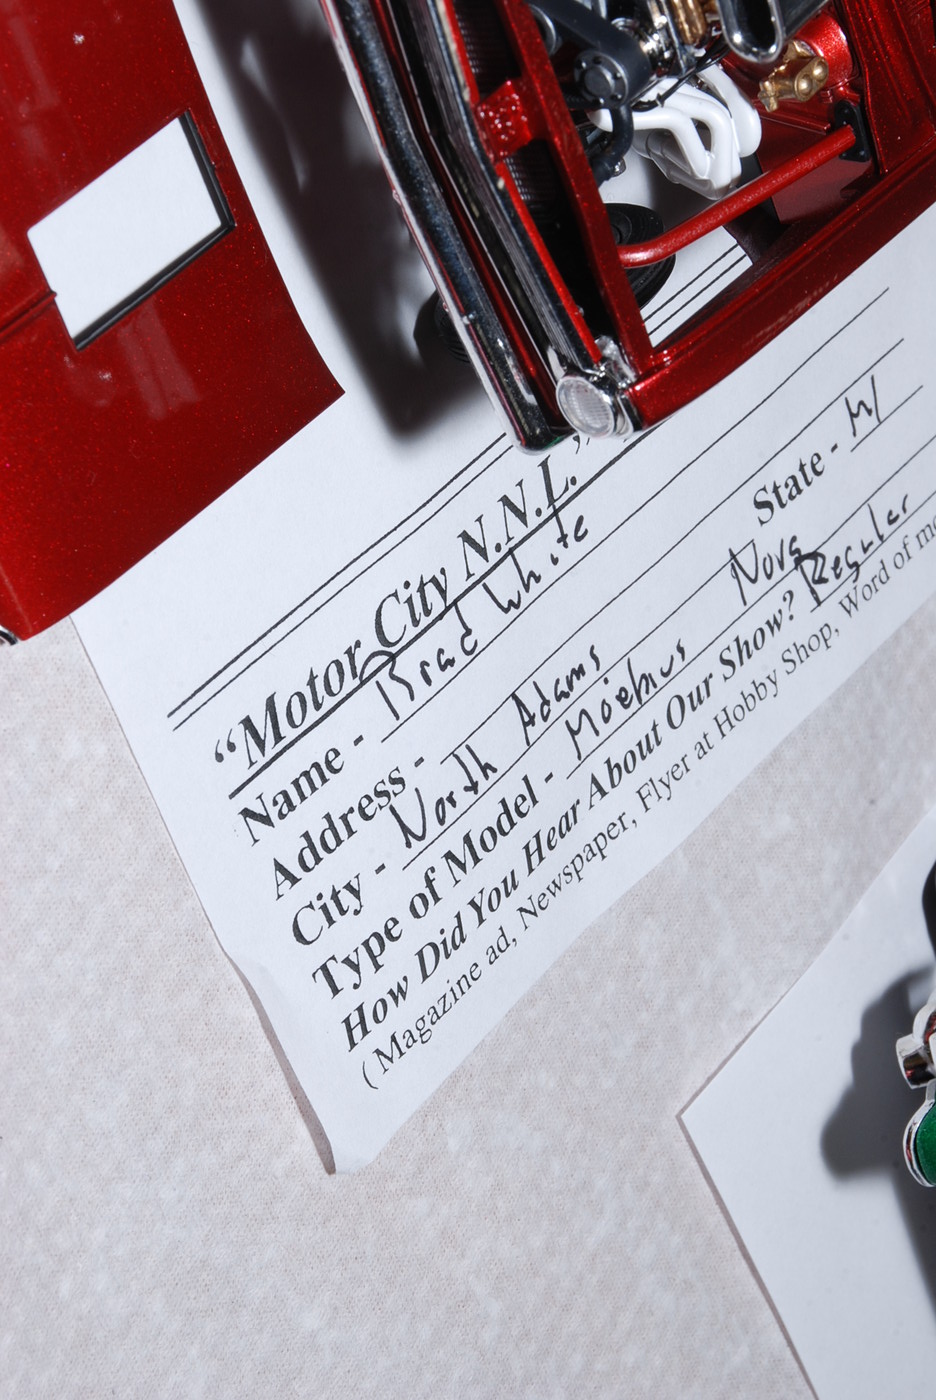 "Motor City N.N.L."
Name - Brad White
Address -
City - North Adams State - MI
Type of Model - Moebius Nova
How Did You Hear About Our Show? Regular
( Magazine ad, Newspaper, Flyer at Hobby Shop, Word of